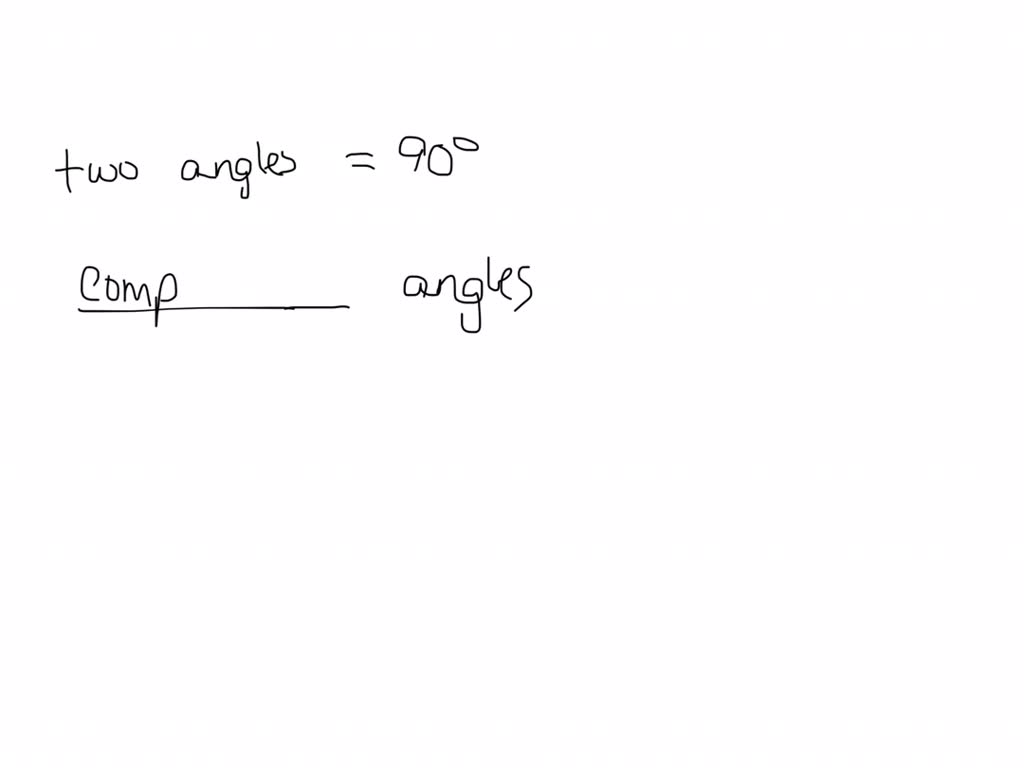 two angles = 90°
Comp______ angles